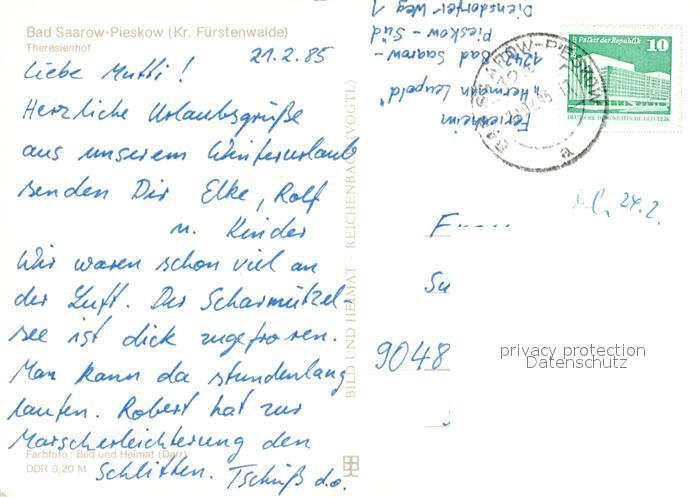 Bad Saarow-Pieskow (Kr. Fürstenwalde)
Theresienhof
21.2.85
Liebe Mutti!
Herzliche Urlaubsgrüße
aus unserem Winterurlaub
senden Dir Elke, Rolf
u. Kinder
Wir waren schon viel an
der Luft. Der Scharmützel-
see ist dick zugefroren.
Man kann da stundenlang
laufen. Robert hat zur
Marscherleichterung den
Schlitten. Tschüß d.o.
Farbfoto: Bild und Heimat (Darr)
DDR 0,20 M
BILD UND HEIMAT · REICHENBACH (VOGTL)
Ferienheim
"Hermann Leupold"
1242 Bad Saarow-
Pieskow-Süd
Diensdorfer Weg 1
Palast der Republik
10
DEUTSCHE DEMOKRATISCHE REPUBLIK
BAD SAAROW-PIESKOW
a
24.2.
9048
privacy protection
Datenschutz